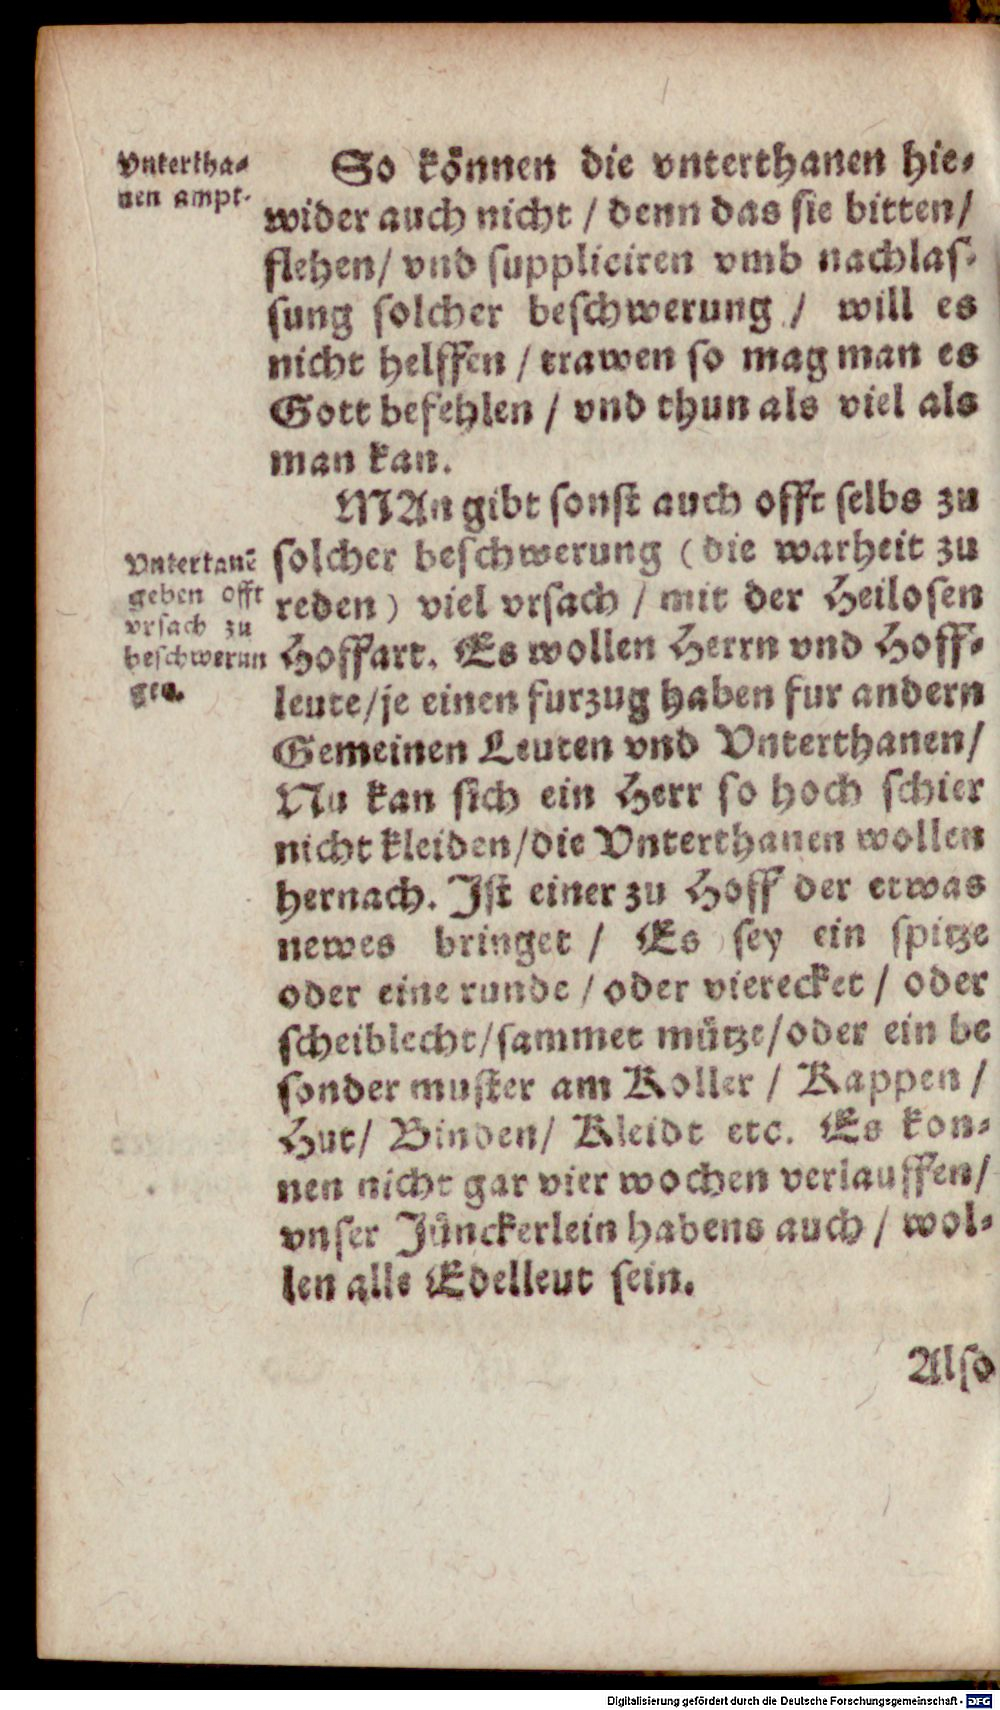 Vntertha⸗
nen ampt.
So können die vnterthanen hie⸗
wider auch nicht / denn das sie bitten/
flehen/ vnd suppliciren vmb nachlas⸗
sung solcher beschwerung / will es
nicht helffen / trawen so mag man es
Gott befehlen / vnd thun als viel als
man kan.
MAn gibt sonst auch offt selbs zu
Vntertanē
geben offt
vrsach zu
beschwerun
gen.
solcher beschwerung (die warheit zu
reden) viel vrsach / mit der Heilosen
Hoffart. Es wollen Herrn vnd Hoff⸗
leute/je einen furzug haben fur andern
Gemeinen Leuten vnd Vnterthanen/
Nu kan sich ein Herr so hoch schier
nicht kleiden/die Vnterthanen wollen
hernach. Ist einer zu Hoff der etwas
newes bringet / Es sey ein spitze
oder eine runde / oder vierecket / oder
scheiblecht/sammet mütze/oder ein be
sonder muster am Koller / Kappen /
Hut/ Binden/ Kleidt etc. Es kon⸗
nen nicht gar vier wochen verlauffen/
vnser Jünckerlein habens auch / wol⸗
len alle Edelleut sein.
Also
Digitalisierung gefördert durch die Deutsche Forschungsgemeinschaft - DFG